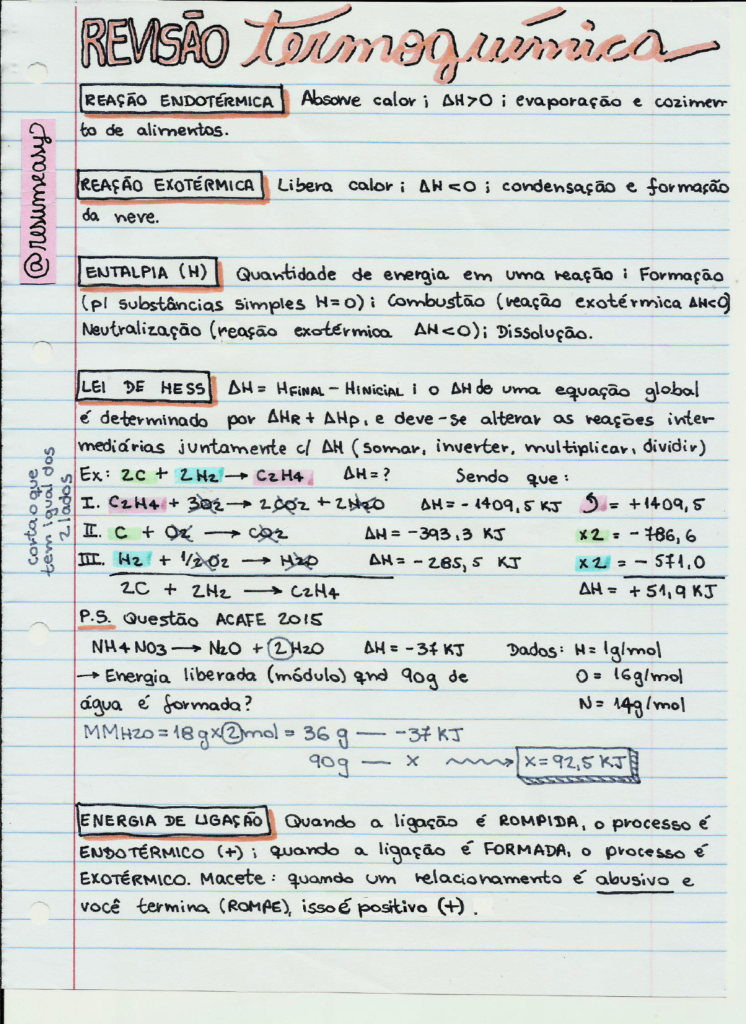 REVISÃO termoquímica
REAÇÃO ENDOTÉRMICA Absorve calor ; ΔH>0 ; evaporação e cozimen-
to de alimentos.
@resumeasy
REAÇÃO EXOTÉRMICA Libera calor ; ΔH<0 ; condensação e formação
da neve.
ENTALPIA (H) Quantidade de energia em uma reação ; Formação
(p/ substâncias simples H=0) ; Combustão (reação exotérmica ΔH<0)
Neutralização (reação exotérmica ΔH<0) ; Dissolução.
LEI DE HESS ΔH = HFINAL - HINICIAL ; o ΔH de uma equação global
é determinado por ΔHR + ΔHP, e deve-se alterar as reações inter-
mediárias juntamente c/ ΔH (somar, inverter, multiplicar, dividir)
Ex: 2C + 2H2 → C2H4 ΔH = ? Sendo que :
corta o que
tem igual dos
2 lados
I. C2H4 + 3O2 → 2CO2 + 2H2O ΔH = - 1409,5 KJ = +1409,5
II. C + O2 → CO2 ΔH = -393,3 KJ x2 = - 786,6
III. H2 + 1/2O2 → H2O ΔH = - 285,5 KJ x2 = - 571,0
2C + 2H2 → C2H4 ΔH = + 51,9 KJ
P.S. Questão ACAFE 2015
NH4NO3 → N2O + 2H2O ΔH = -37 KJ Dados: H = 1g/mol
→ Energia liberada (módulo) qnd 90g de O = 16g/mol
água é formada? N = 14g/mol
MMH2O = 18g x 2mol = 36 g — -37 KJ
90g — x x = 92,5 KJ
ENERGIA DE LIGAÇÃO Quando a ligação é ROMPIDA, o processo é
ENDOTÉRMICO (+) ; quando a ligação é FORMADA, o processo é
EXOTÉRMICO. Macete : quando um relacionamento é abusivo e
você termina (ROMPE), isso é positivo (+) .